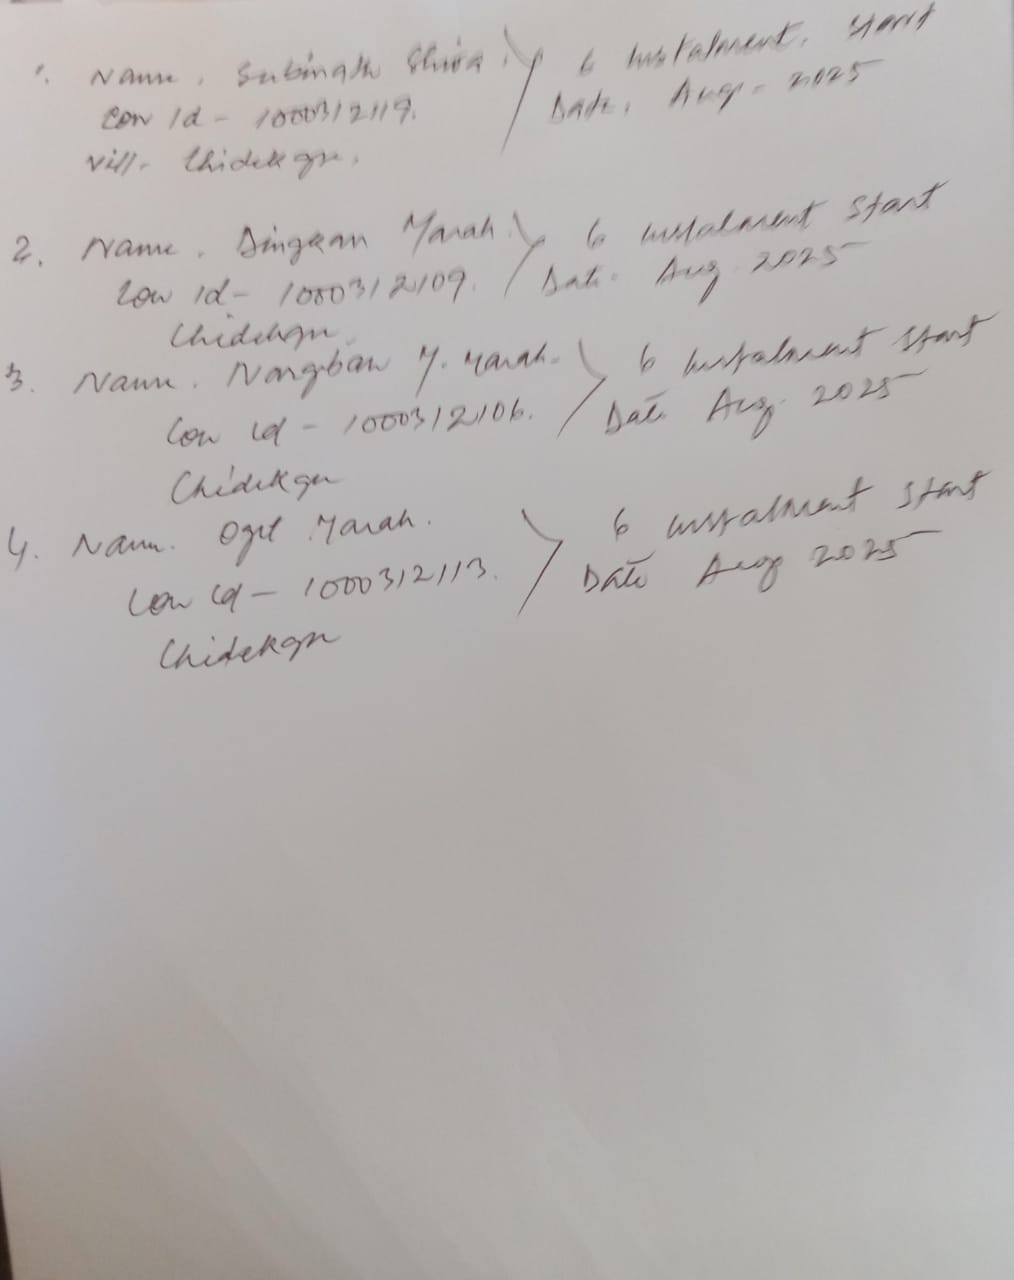 1. Name. Subinath Shira. 6 Instalment. Start
Con Id - 1000312119. Date. Aug - 2025
Vill- Chidekgre.
2. Name. Dingran Marak. 6 instalment start
Con Id - 1000312109. Date. Aug 2025
Chidekgre
3. Name. Nangban M. Marak. 6 Instalment start
Con Id - 1000312106. Date Aug. 2025
Chidekgre
4. Name. Marak. 6 instalment start
Con Id - 1000312113. Date Aug 2025
Chidekgre